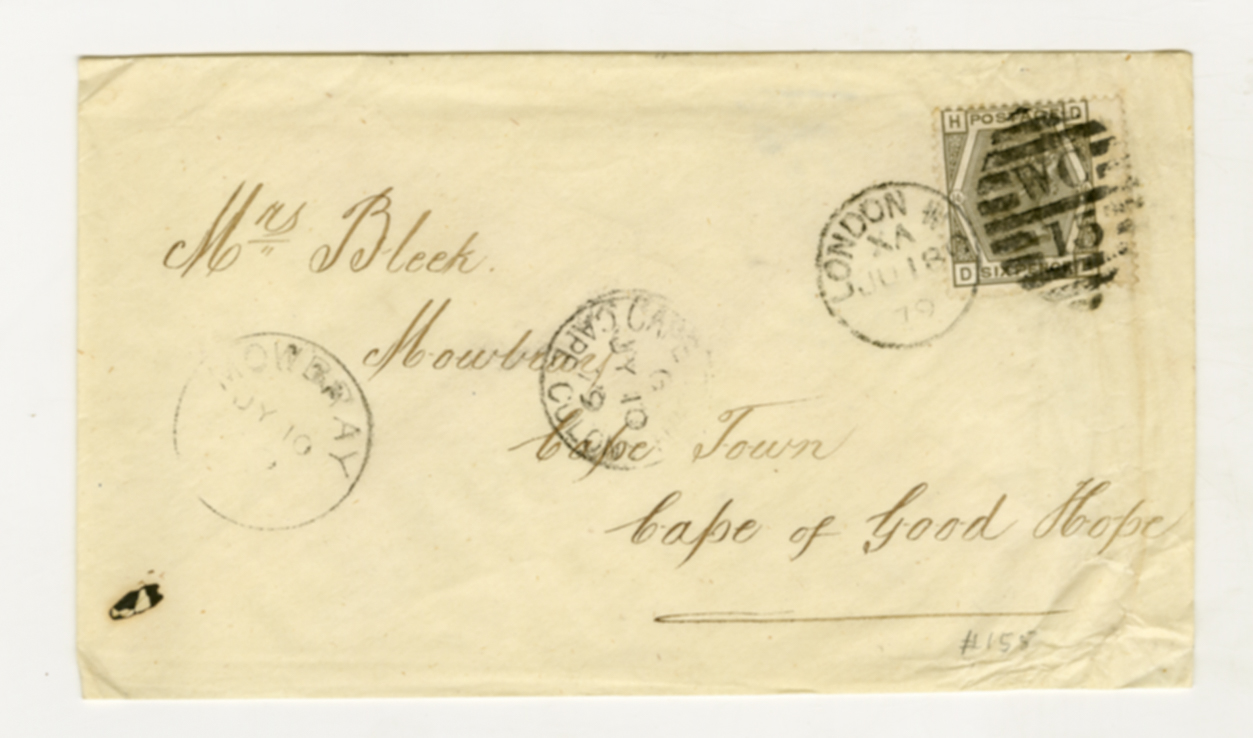 H POSTAGE D
WC
15
D SIXPENCE
LONDON W
XA
JU 18
79
Mrs Bleek.
Mowbray
Cape Town
Cape of Good Hope
MOWBRAY
JY 10
CAPE TOWN
JY 10
#155